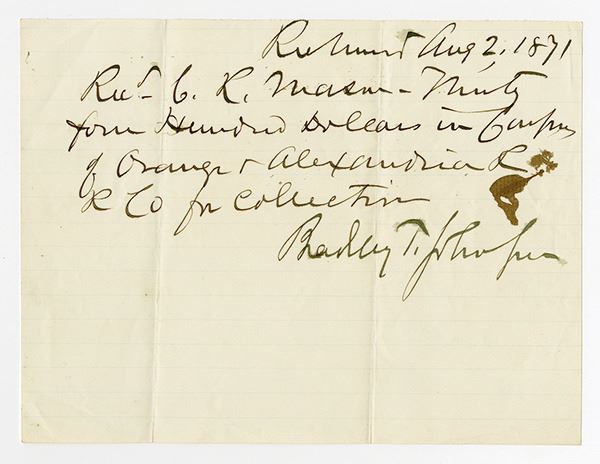 Richmond Aug 2, 1871
Recd - C. R. Mason - Thirty
four Hundred Dollars in Coupons
of Orange & Alexandria R
R Co for Collection
Bradley T. Johnson